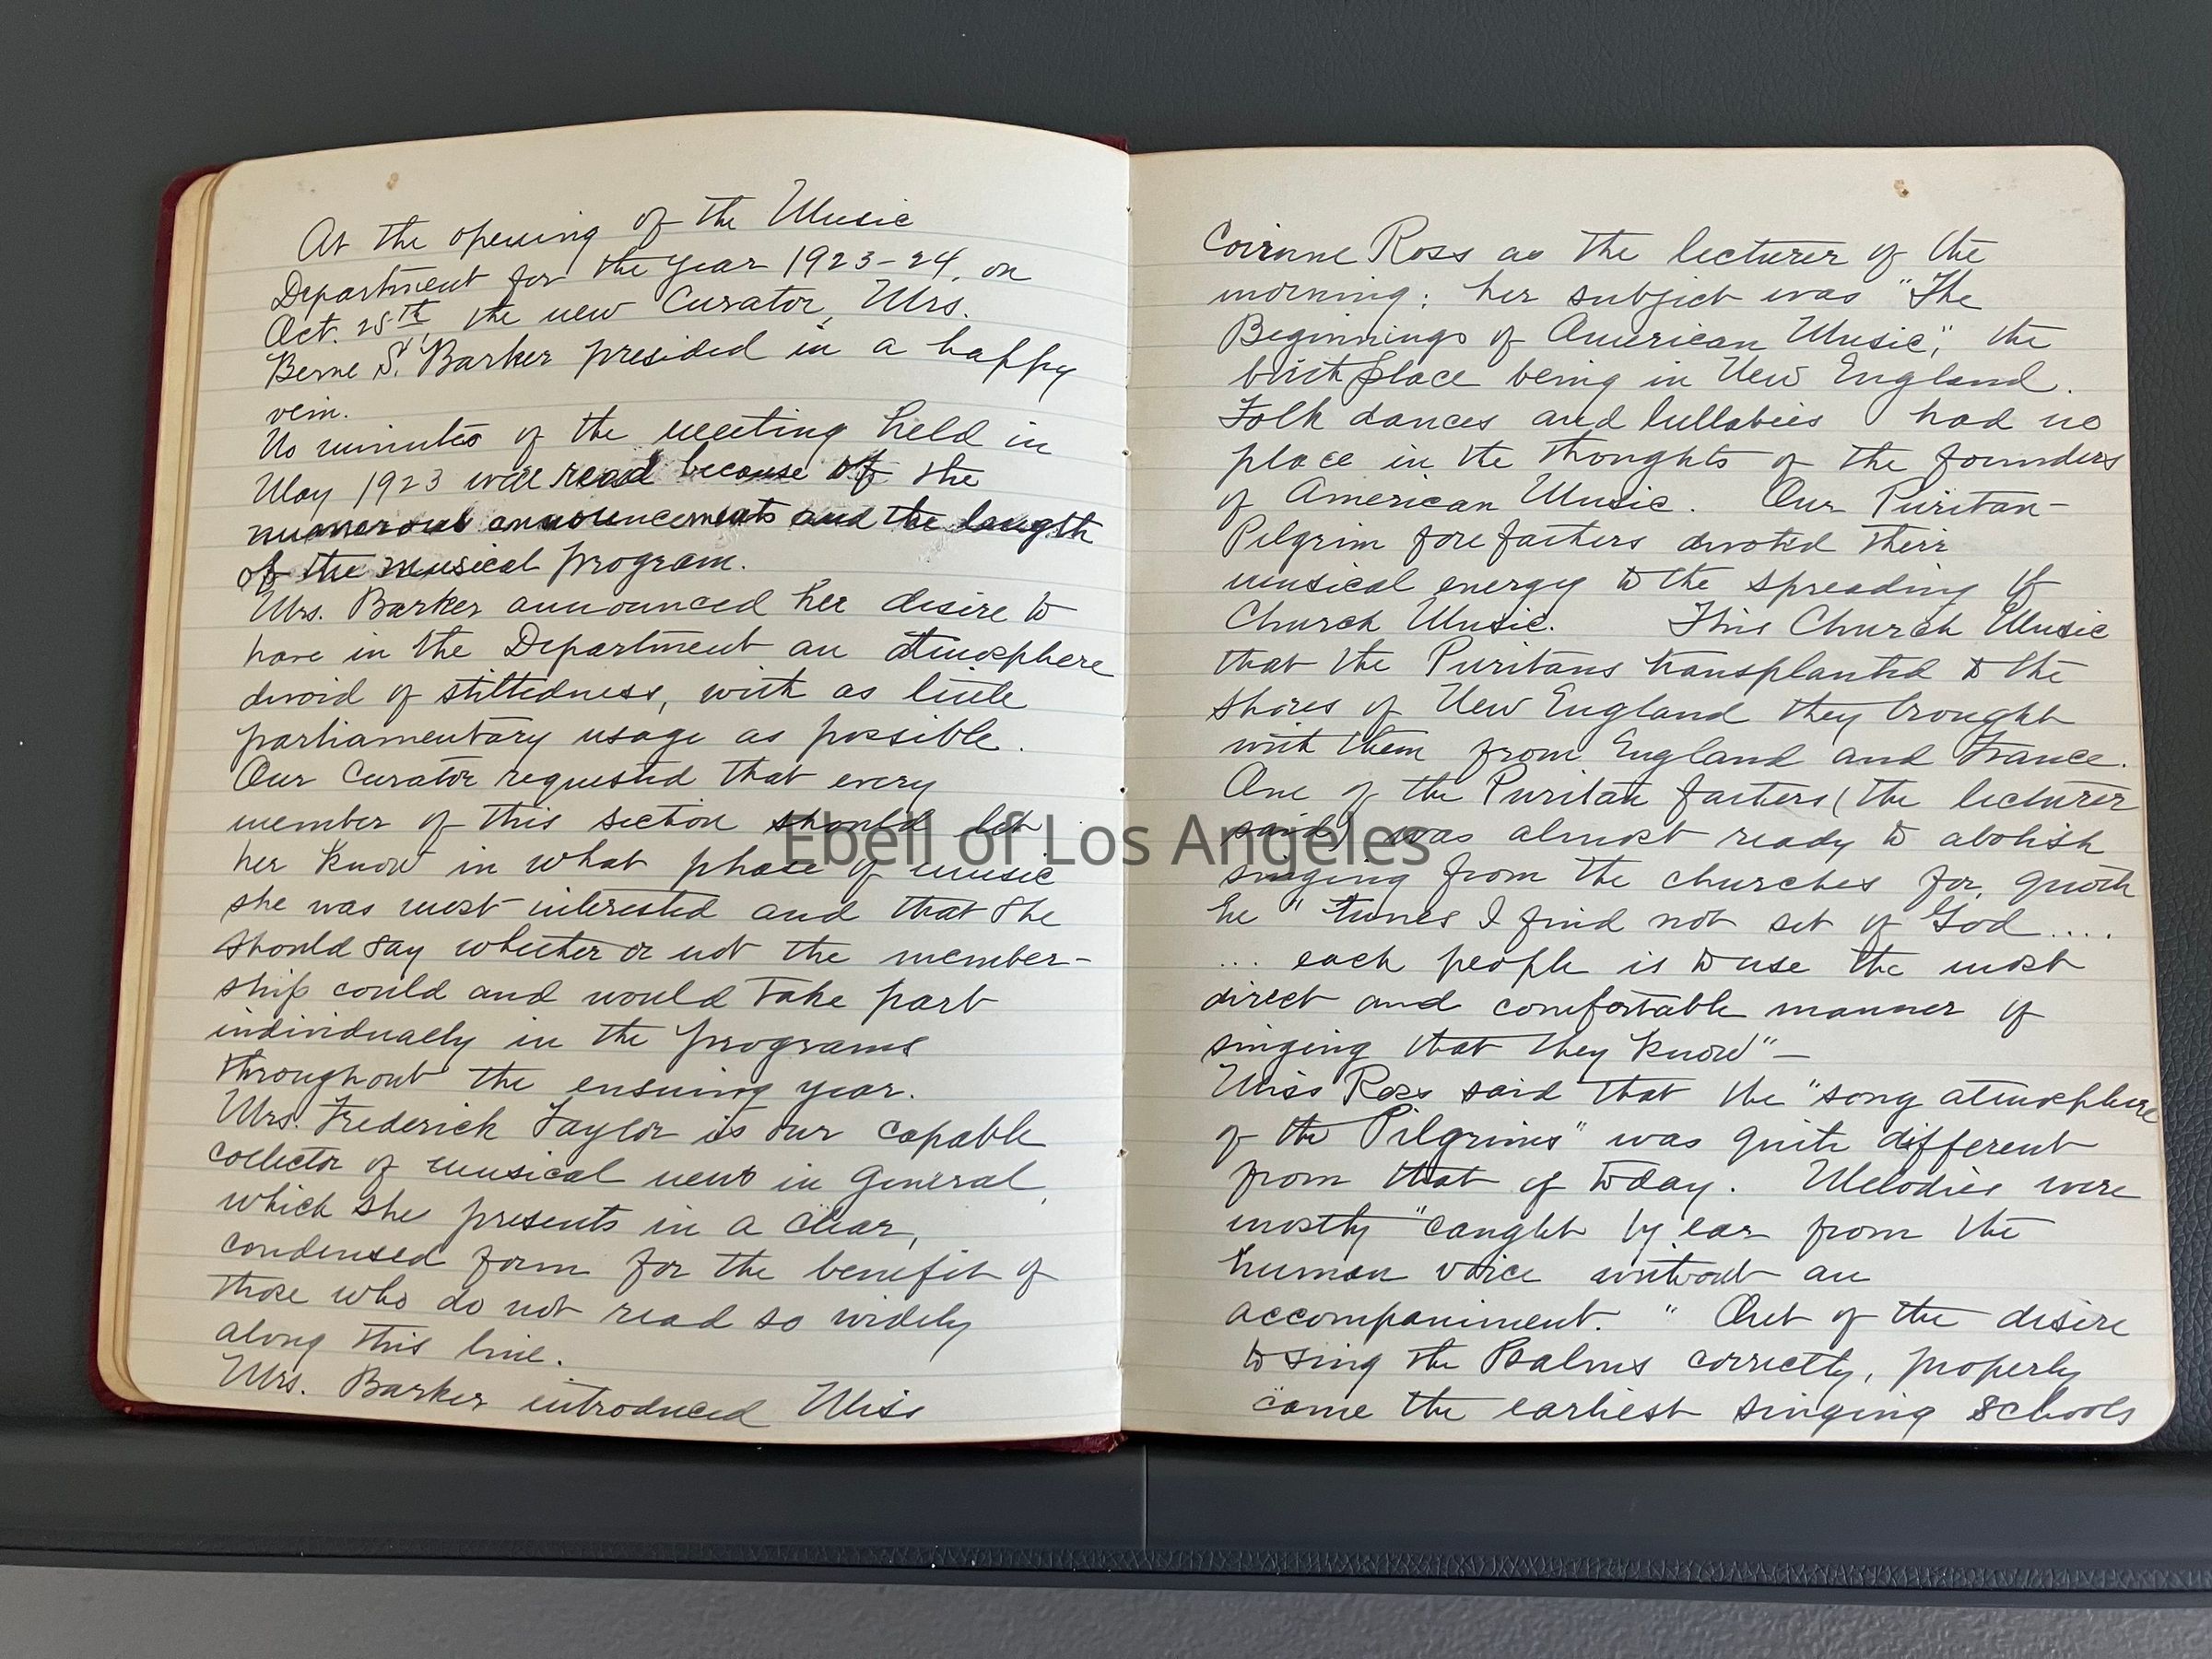 At the opening of the Music
Department for the year 1923-24, on
Oct. 25th, the new Curator, Mrs.
Berne S. Barker presided in a happy
vein.
No minutes of the meeting held in
May 1923 were read because of the
numerous announcements and the length
of the musical program.
Mrs. Barker announced her desire to
have in the Department an atmosphere
devoid of stiltedness, with as little
parliamentary usage as possible.
Our Curator requested that every
member of this section should let
her know in what phase of music
she was most interested and that she
should say whether or not the member-
ship could and would take part
individually in the programs
throughout the ensuing year.
Mrs. Frederick Taylor is our capable
collector of musical news in general,
which she presents in a clear,
condensed form for the benefit of
those who do not read so widely
along this line.
Mrs. Barker introduced Miss
Corinne Ross as the lecturer of the
morning; her subject was "The
Beginnings of American Music," the
birthplace being in New England.
Folk dances and lullabies had no
place in the thoughts of the founders
of American Music. Our Puritan-
Pilgrim forefathers devoted their
musical energy to the spreading of
Church Music. This Church Music
that the Puritans transplanted to the
shores of New England they brought
with them from England and France.
One of the Puritan fathers (the lecturer
said) was almost ready to abolish
singing from the churches for, quoth
he "tunes I find not set of God....
... each people is to use the most
direct and comfortable manner of
singing that they know" —
Miss Ross said that the "song atmosphere
of the Pilgrims" was quite different
from that of today. Melodies were
mostly "caught by ear from the
human voice without an
accompaniment." Out of the desire
to sing the Psalms correctly, properly
came the earliest singing schools
Ebell of Los Angeles